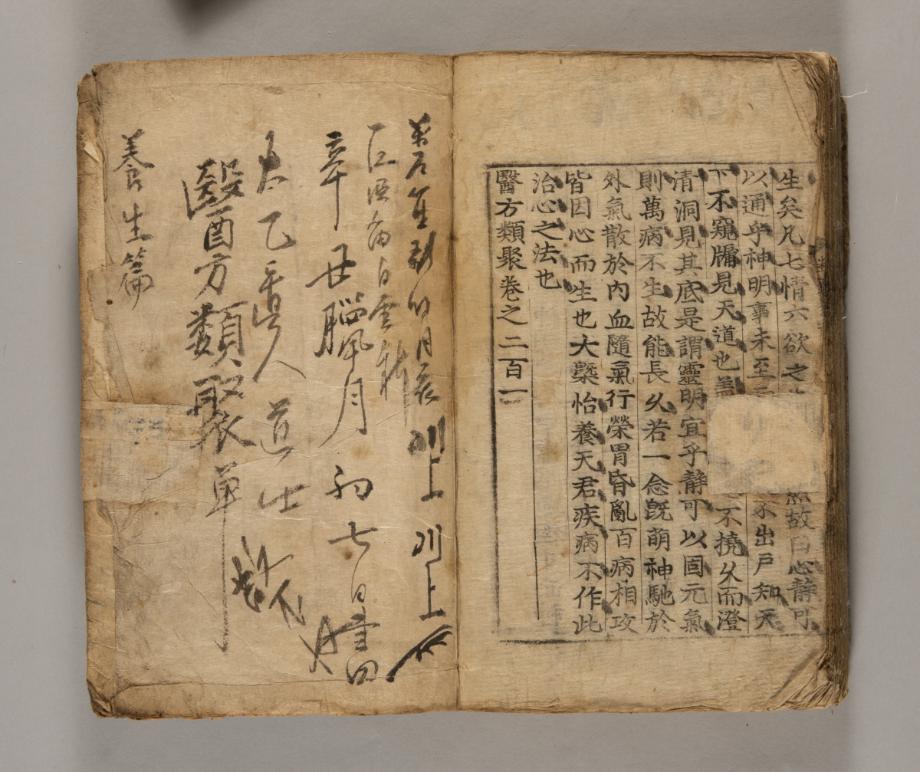 生矣凡七情六欲之 故曰心靜可
以通乎神明事未至 不出戶知天
下不窺牖見天道也盖 不撓久而澄
清洞見其底是謂靈明宜乎靜可以固元氣
則萬病不生故能長久若一念旣萌神馳於
外氣散於內血隨氣行榮胃昏亂百病相攻
皆因心而生也大槩怡養天君疾病不作此
治心之法也
醫方類聚卷之二百一
月 川上 川上
白雲
辛丑臘月初七日
太乙眞人道士
醫方類聚單
養生篇